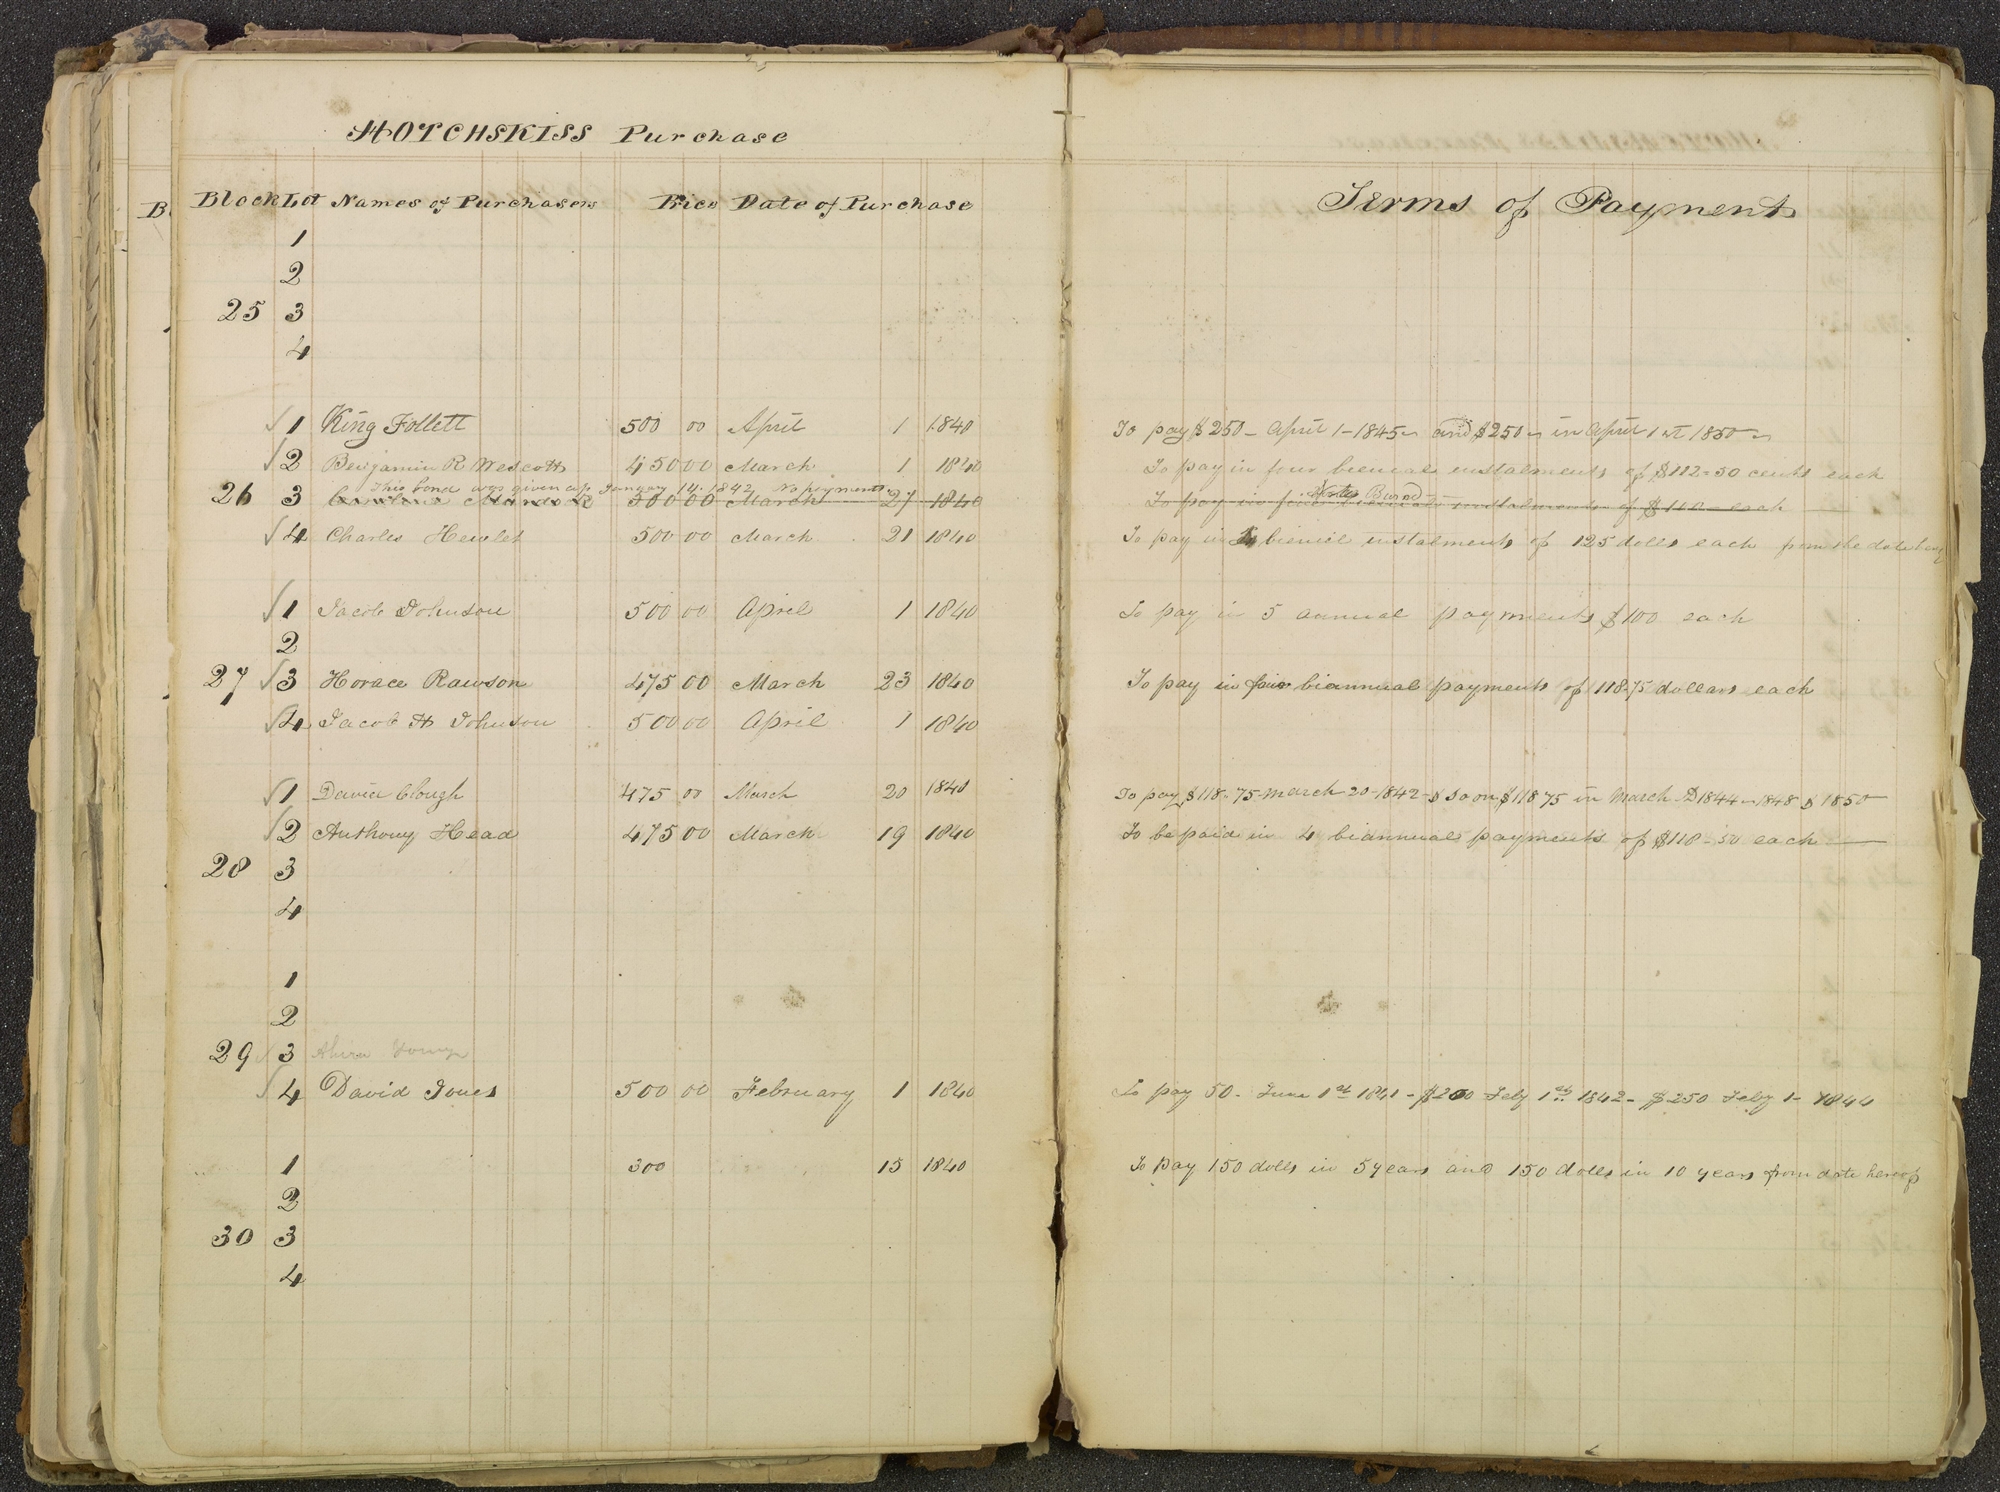 HOTCHSKISS Purchase
Block Lot Names of Purchasers Price Date of Purchase Terms of Payment
1
2
25 3
4
√ 1 King Follett 500 00 April 1 1840 To pay $250 - April 1 - 1845 and $250 in April 1st 1850
√ 2 Benjamin R Wescott 450 00 March 1 1840 To pay in four bienial instalments of $112=50 cents each
This bond was given up January 14. 1842 No payments Notes Burnd
26 3 Murdock 500 00 March 27 1840 To pay in four instalments of $110 - each
√ 4 Charles Hewlet 500 00 March 21 1840 To pay in bieniel instalments of 125 dolls each from the date
√ 1 Jacob Johnson 500 00 April 1 1840 To pay in 5 annual payments $100 each
2
27 √ 3 Horace Rawson 475 00 March 23 1840 To pay in four biannual payments of 118.75 dollars each
√ 4 Jacob H Johnson 500 00 April 1 1840
√ 1 David Clough 475 00 March 20 1840 To pay $118-75 March 20-1842 - & so on $118 75 in March 1844 - 1848 & 1850
√ 2 Anthony Head 475 00 March 19 1840 To be paid in 4 biannual payments of $118-50 each
28 3
4
1
2
29 √ 3 Young
√ 4 David Jones 500 00 February 1 1840 To pay 50 - June 1st 1841 - $200 Feby 1st 1842 - $250 Feby 1 - 1844
1 300 15 1840 To pay 150 dolls in 5 years and 150 dolls in 10 years from date hereof
2
30 3
4